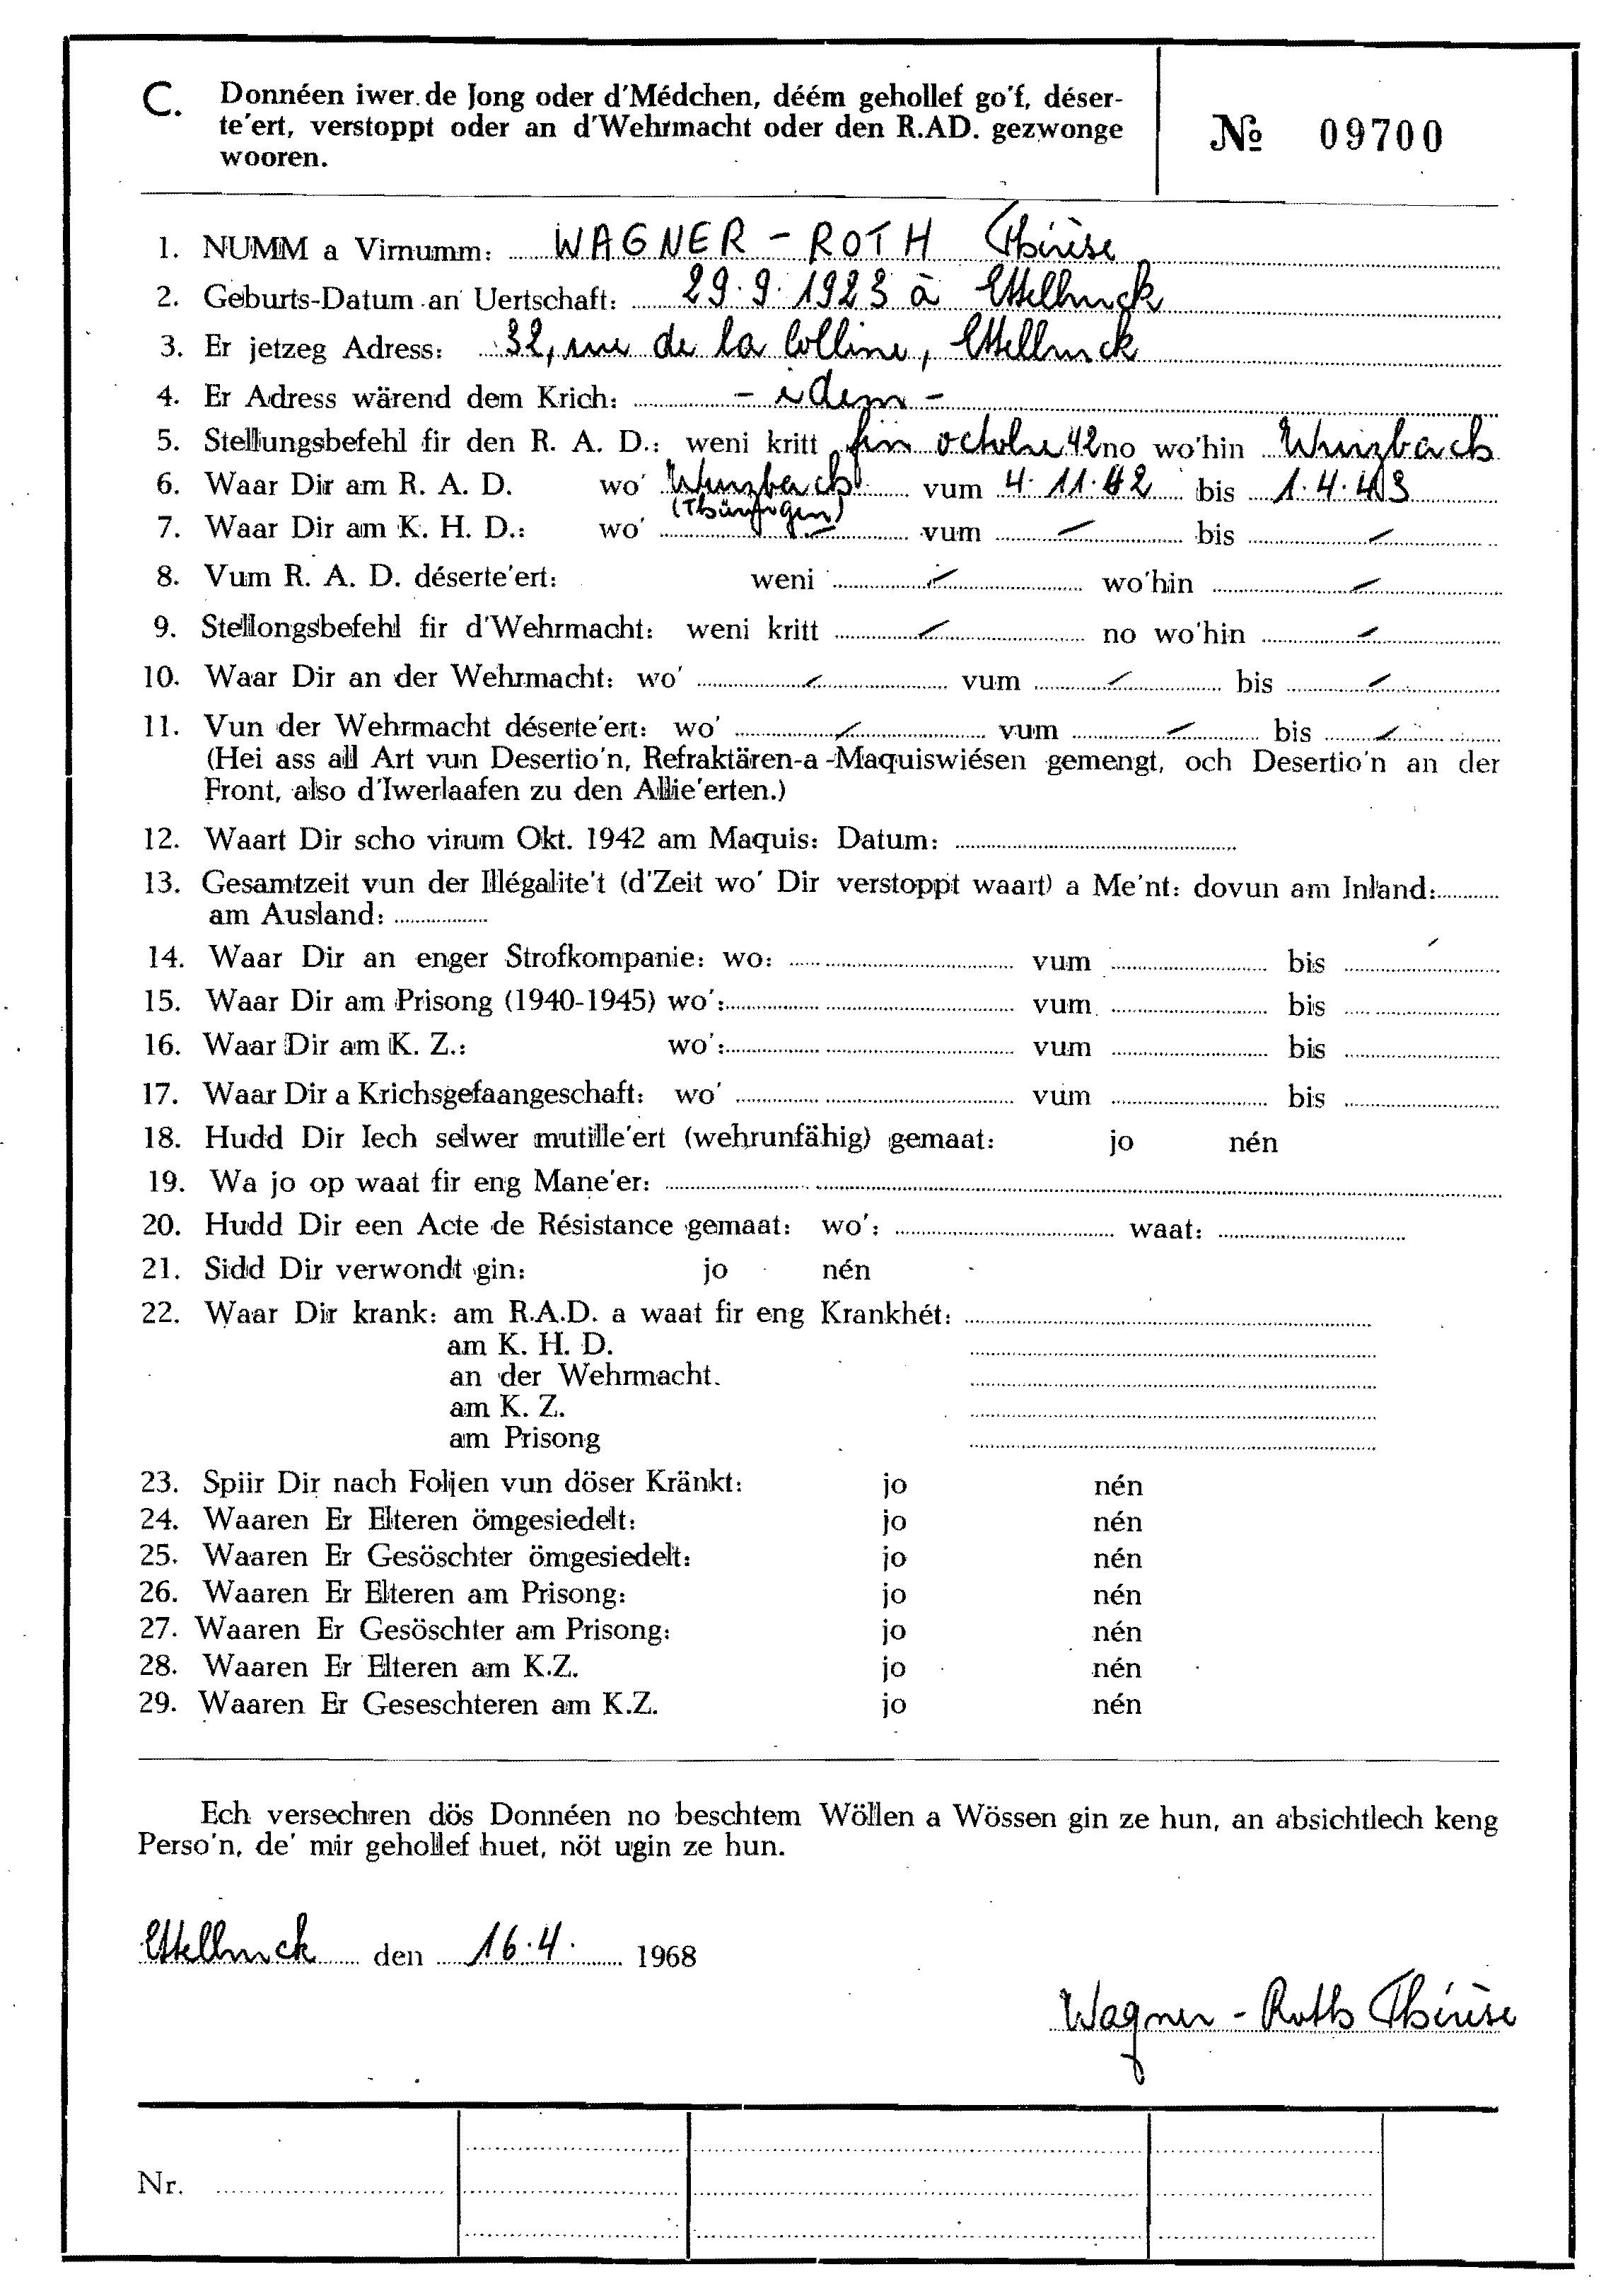 C. Donnéen iwer de Jong oder d'Médchen, déém gehollef go'f, déser-
te'ert, verstoppt oder an d'Wehrmacht oder den R.AD. gezwonge
wooren.
№ 09700
1. NUMM a Virnumm: WAGNER - ROTH Thérèse
2. Geburts-Datum an Uertschaft: 29.9.1923 à Ettelbruck
3. Er jetzeg Adress: 32, rue de la Colline, Ettelbruck
4. Er Adress wärend dem Krich: - idem -
5. Stellungsbefehl fir den R. A. D.: weni kritt fin octobre 42 no wo'hin Wurzbach
6. Waar Dir am R. A. D. wo' Wurzbach vum 4.11.42 bis 1.4.43
(Thüringen)
7. Waar Dir am K. H. D.: wo' – vum – bis –
8. Vum R. A. D. déserte'ert: weni – wo'hin –
9. Stellongsbefehl fir d'Wehrmacht: weni kritt – no wo'hin –
10. Waar Dir an der Wehrmacht: wo' – vum – bis –
11. Vun der Wehrmacht déserte'ert: wo' – vum – bis –
(Hei ass all Art vun Desertio'n, Refraktären-a -Maquiswiésen gemengt, och Desertio'n an der
Front, also d'Iwerlaafen zu den Allie'erten.)
12. Waart Dir scho virum Okt. 1942 am Maquis: Datum:
13. Gesamtzeit vun der Illégalite't (d'Zeit wo' Dir verstoppt waart) a Me'nt: dovun am Inland:
am Ausland:
14. Waar Dir an enger Strofkompanie: wo: vum bis
15. Waar Dir am Prisong (1940-1945) wo': vum bis
16. Waar Dir am K. Z.: wo': vum bis
17. Waar Dir a Krichsgefaangeschaft: wo' vum bis
18. Hudd Dir Iech selwer mutille'ert (wehrunfähig) gemaat: jo nén
19. Wa jo op waat fir eng Mane'er:
20. Hudd Dir een Acte de Résistance gemaat: wo': waat:
21. Sidd Dir verwondt gin: jo nén
22. Waar Dir krank: am R.A.D. a waat fir eng Krankhét:
am K. H. D.
an der Wehrmacht.
am K. Z.
am Prisong
23. Spiir Dir nach Foljen vun döser Kränkt: jo nén
24. Waaren Er Elteren ömgesiedelt: jo nén
25. Waaren Er Gesöschter ömgesiedelt: jo nén
26. Waaren Er Elteren am Prisong: jo nén
27. Waaren Er Gesöschter am Prisong: jo nén
28. Waaren Er Elteren am K.Z. jo nén
29. Waaren Er Geseschteren am K.Z. jo nén
Ech versechren dös Donnéen no beschtem Wöllen a Wössen gin ze hun, an absichtlech keng
Perso'n, de' mir gehollef huet, nöt ugin ze hun.
Ettelbruck den 16.4. 1968
Wagner - Roth Thérèse
Nr.